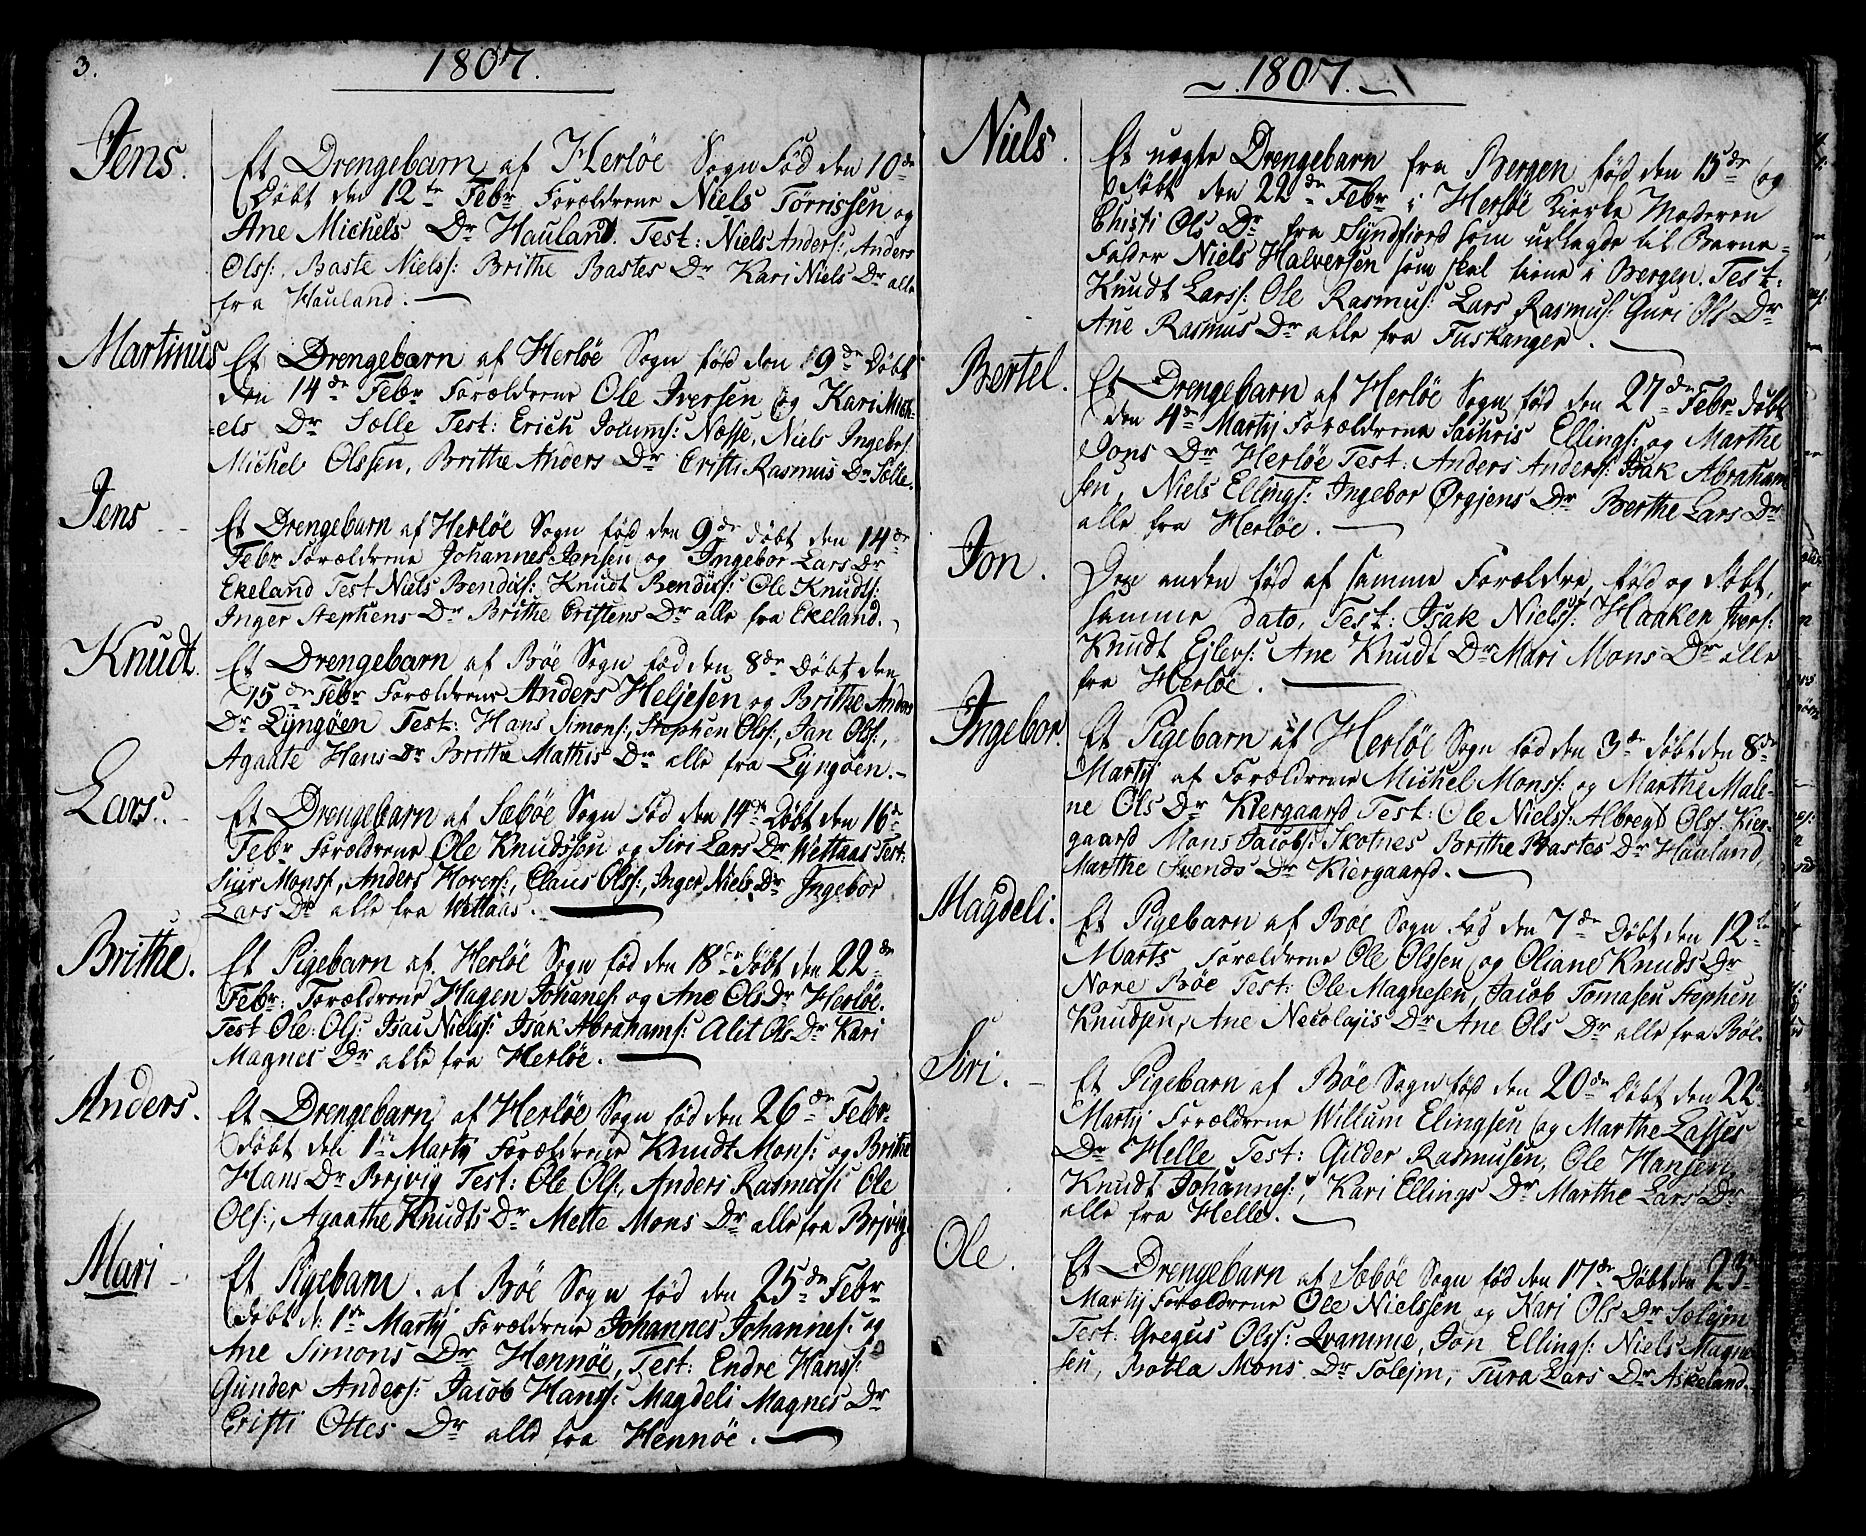 3.
1807.
Jens.
Et Drengebarn af Herløe Sogn Fød den 10de
Døbt den 12te Febr Forældrene Niels Tørrissen og
Ane Michels Dr Hauland. Test: Niels Anders:, Anders
Olss:, Baste Nielss: Brithe Bastes Dr Kari Niels Dr alle
fra Hauland.
Martinus
Et Drengebarn af Herløe Sogn fød den 9de Døbt
den 14de Febr Forældrene Ole Iversen og Kari Mich-
els Dr Sælle Test: Erich Joensen Næsse, Niels Ingebr:
Michel Olssen, Brithe Anders Dr Cristi Rasmus Dr Sælle.
Jens
Et Drengebarn af Herløe Sogn fød den 9de døbt den 14de
Febr Forældrene Johannes Jonsen og Ingebor Lars Dr
Ekeland Test Niels Bendixs: Knudt Bendixs: Ole Knudts:
Inger Stephens Dr Brithe Cristens Dr alle fra Ekeland.
Knudt.
Et Drengebarn af Bøe Sogn fød den 8de Døbt den
15de Febr Forældrene Anders Heljesen og Brithe Anders
Dr Lyngøen Test: Hans Simons:, Stephen Olss:, Jan Olss:,
Agaate Hans Dr Brithe Mathis Dr alle fra Lyngøen.
Lars.
Et Drengebarn af Sæbøe Sogn Fød den 14de Døbt den 16de
Febr Forældrene Ole Knudssøn og Siri Lars Dr Wettaas Test:
Siur Monss:, Anders Hovers:, Claus Olss:, Inger Niels Dr Ingebor
Lars Dr alle fra Wettaas.
Brithe.
Et Pigebarn af Herløe Sogn fød den 18de Døbt den 22de
Febr: Forældrene Hagen Johanes: og Ane Ols Dr Herløe.
Test Ole: Ols: Isac Nielss: Isak Abrahams: Alit Ols Dr Kari
Magnes Dr alle fra Herløe.
Anders.
Et Drengebarn af Herløe Sogn fød den 26de Febr.
døbt den 1te Martij Forældrene Knudt Mons: og Brithe
Hans Dr Brejvig Test: Ole Ols:, Anders Rasmus: Ole
Ols:, Agaathe Knudts Dr Mette Mons Dr alle fra Brejvig
Mari
Et Pigebarn af Bøe Sogn fød den 25de Febr
Døbt d: 1te Martij Forældrene Johannes Johannes: og
Ane Simons Dr Hennøe, Test: Endre Hanss:
Gunder Anders: Jacob Hanss: Magdeli Magnes Dr
Cristi Ottes Dr alle fra Hennøe.
1807.
Niels.
Et uægte Drengebarn fra Bergen fød den 15de og
døbt den 22de Febr i Herløe Kierke Moderen
Christi Ols Dr fra Syndfiord som udlagde til Barne-
Fader Niels Halversen som skal tiene i Bergen. Test:
Knudt Larss: Ole Rasmus: Lars Rasmus: Guri Ols Dr
Ane Rasmus Dr alle fra Tuskanger.
Bertel.
Et Drengebarn af Herløe Sogn fød den 27de Febr døbt
den 4de Martij Forældrene Sachris Ellings: og Marthe
Jons Dr Herløe Test: Anders Anders: Isak Abraham
sen, Niels Ellings: Ingebor Ørgjens Dr Berthe Lars Dr
alle fra Herløe.
Jon.
Den anden fød af samme Forældre, fød og døbt,
samme dato, Test: Isak Niels: Haaken Ivers:
Knudt Ejlers: Ane Knudt Dr Mari Mons Dr alle
fra Herløe.
Ingebor.
Et Pigebarn af Herløe Sogn fød den 3de døbt den 8de
Martij af Forældrene Michel Mons: og Marthe Male-
ne Ols Dr Kiergaard Test: Ole Niels: Albregt Olss: Kier-
gaard Mons Jacobs: Skotnes Brithe Bastes Dr Hauland,
Marthe Svends Dr Kiergaard.
Magdeli.
Et Pigebarn af Bøe Sogn Fød den 7de Døbt den 12te
Marts Forældrene Ole Olssen og Oliane Knuds Dr
Nore Bøe Test: Ole Magnesen, Jacob Tomasen Stephen
Knudsen, Ane Necolajis Dr Ane Ols Dr alle fra Bøe.
Siri.
Et Pigebarn af Bøe Sogn fød den 20de Døbt den 22de
Martij Forældrene Willum Elingsen og Marthe Lasses
Dr Helle Test: Gilder Rasmusen, Ole Hansen
Knudt Johannes:, Kari Ellings Dr Marthe Lars Dr
alle fra Helle.
Ole.
Et Drengebarn af Sæbøe Sogn fød den 17de Døbt den 23de
Martij Forældrene Ole Nielssen og Kari Ols Dr Solejm
Test: Gregus Olss: Qvamme, Jon Ellings: Niels Magne-
sen, Botla Mons Dr Solejm, Tura Lars Dr Askeland.